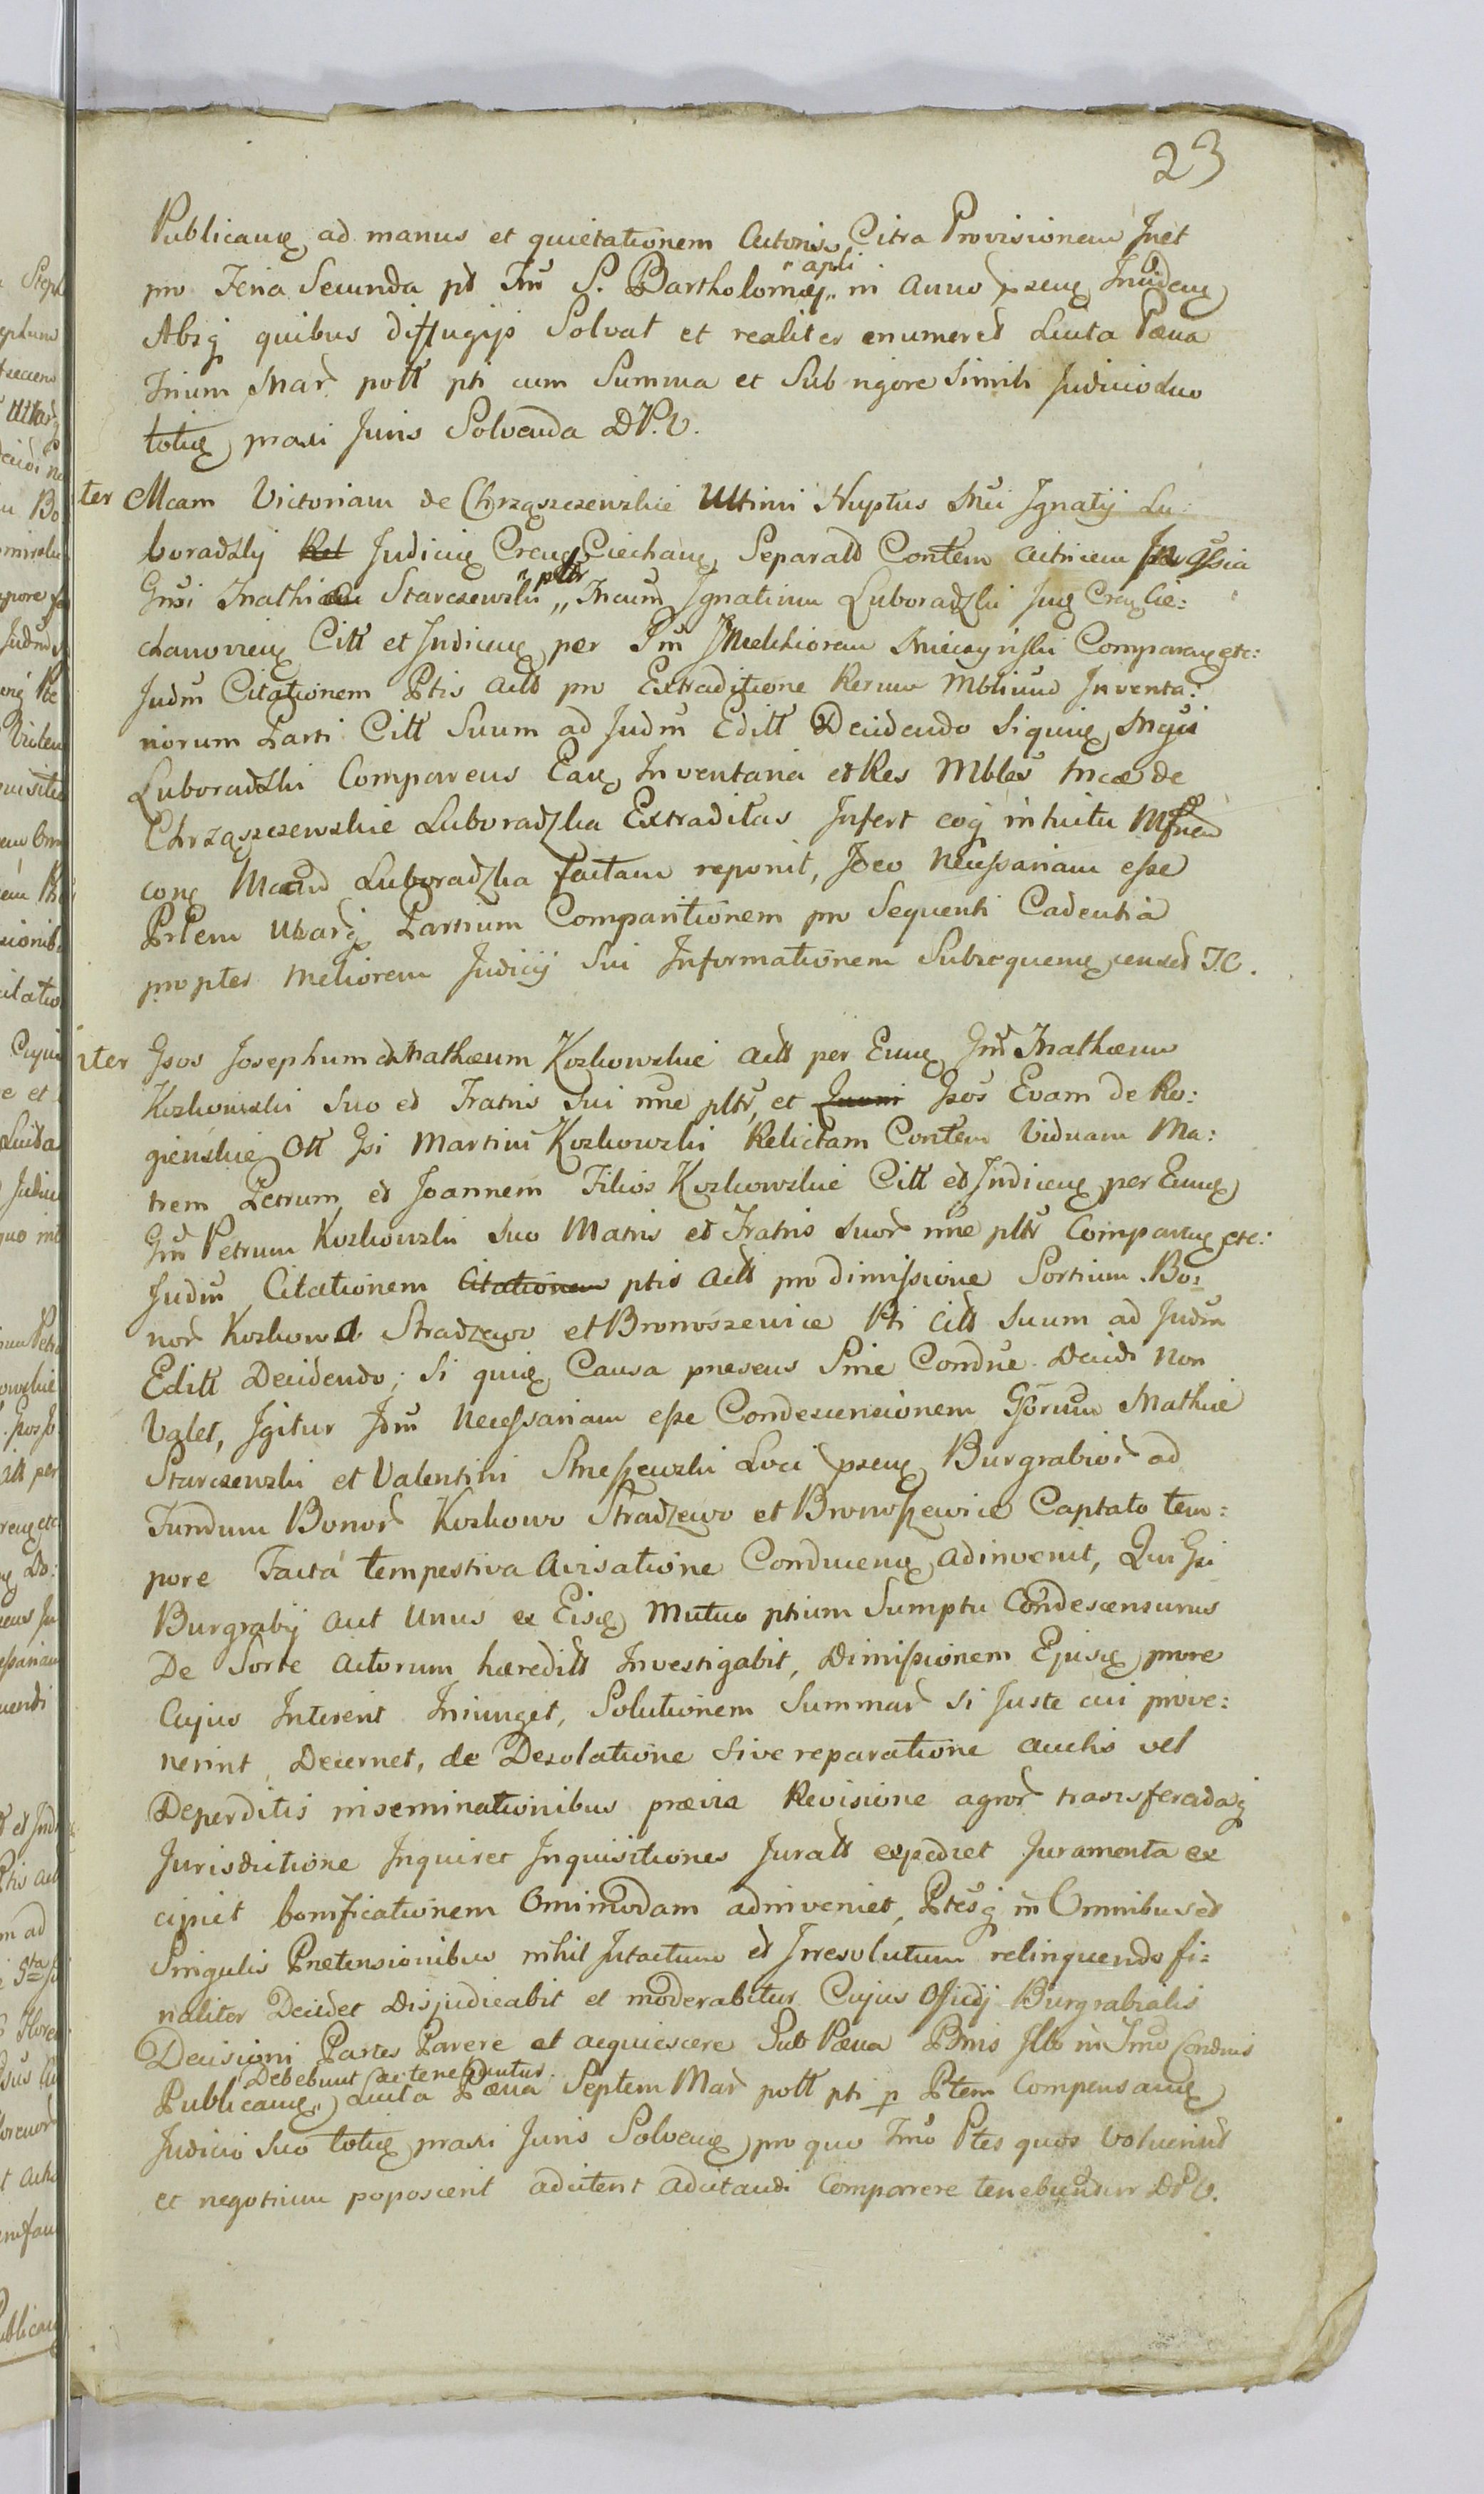 23
Publicanꝫ ad manus et quietationem Actoris Citra Provisionem Juet
pro Feria Secunda pt Fm S. Bartholomæj „apli in anno psenꝫ Incidenꝫ
Absq quibus diffugijs Solvat et realiter enumeret Luita Pæna
Trium Mar pott pti cum Summa et Sub rigore simili Judicio duo
totieꝫ praxi Juris Solvenda DPV.
ter Mcam Victoriam de Chrząszczewskie Ultimi Nuptus Mci Ignatij Lu
boradzkj Judicis Crenꝫ Ciechanꝫ Separatt Contem Actricem
Gnsi Mathiæ Starczewski „ pltr Mcum Ignatium Luboradzki Juꝫ Crenꝫ Cie:
chanovienꝫ Citt et Indicenꝫ per Pm Melchiorem Mieczyński Comparenꝫ etc:
Judm Citationem Ptis Actt pro Extraditione Rerum Mblium Inventa:
riorum Parti Citt Suum ad Judm Editt Decidendo Siquiꝫ Mgus
Luboradzki Comparens Eaꝫ Inventaria et Res Mbles Mcæ de
Chrząszczewskie Luboradzka Extraditas Infert eoq intuitu
conꝫ Luboradzka factam reponit, Ideo Necessariam esse
Ptem utarq Partium Comparitionem pro Sequenti Cadentia
propter meliorem Judicij Sui Informationem Subsequenꝫ censet I.C.
iter Gsos Josephum et Mathæum Kozkowskie Actt per Eunꝫ Gm Mathæum
Kozkowski Suo et Fratris Sui nne pltr, et Gsos Evam de Ro:
gienskie Ott Gsi Martini Kozkowski Relictam Contem Viduam Ma:
trem Petrum et Joannem Filios Kozkowskie Citt et Indicenꝫ per Eunꝫ
Gm Petrum Kozkowski Suo Matris et Fratris Suor nne pltr Comparenꝫ etc:
Judm Citationem Citationem ptis Actt pro dimissione Sortium Bo:
nor Kozkowo Stradzewo et Bronoszewice Pti Citt Suum ad Judm
Editt Decidendo; Si quiꝫ Causa præsens Sine Condne Decidi Non
Valet, Igitur Idm Necessariam esse Condescensionem Gsorum Mathiæ
Starczewski et Valentini Strzeszewski Loci psenꝫ Burgrabior ad
Fundum Bonor Kozkowo Stradzewo et Bronoszewice Captato tem:
pore Facta tempestiva Avisatione Conducenꝫ adinvenit, Qui Gsi
Burgrabij aut Unus ex Eisꝫ Mutuo ptium Sumptu Condescensurus
De Sorte Actorum hæreditt Investigabit, Dimissionem Ejusꝫ prore
Cujus Intererit Injunget, Solutionem Summar si Juste cui prove:
nerint Decernet, de Desolatione sive reparatione auctis vel
Deperditis inseminationibus prævia Revisione agror transferendaq
Jurisdictione Inquiret Inquisitiones Juratt expediet Juramenta ex
cipiet bonificationem Omnimodam adinveniet, Ptesq in Omnibus et
Singulis Prætensionibus nihil Intactum et Irresolutum relinquendo fi:
naliter Decidet Disjudicabit et moderabitur Cujus Officij Burgrabialis
Decisioni Partes Parere et acquiescere Sub Pæna Bmis Illo in Fmo Condnis
Publicanꝫ „ Debebunt ac tenebuntur Luita Pæna Septem Mar pott pti p Ptem Compensanꝫ
Judicio Suo totieꝫ praxi Juris Solvenꝫ pro quo Fmo Ptes quos Voluerint
et negotium poposcerit adcitent adcitandi Comparere tenebuntur DPV.